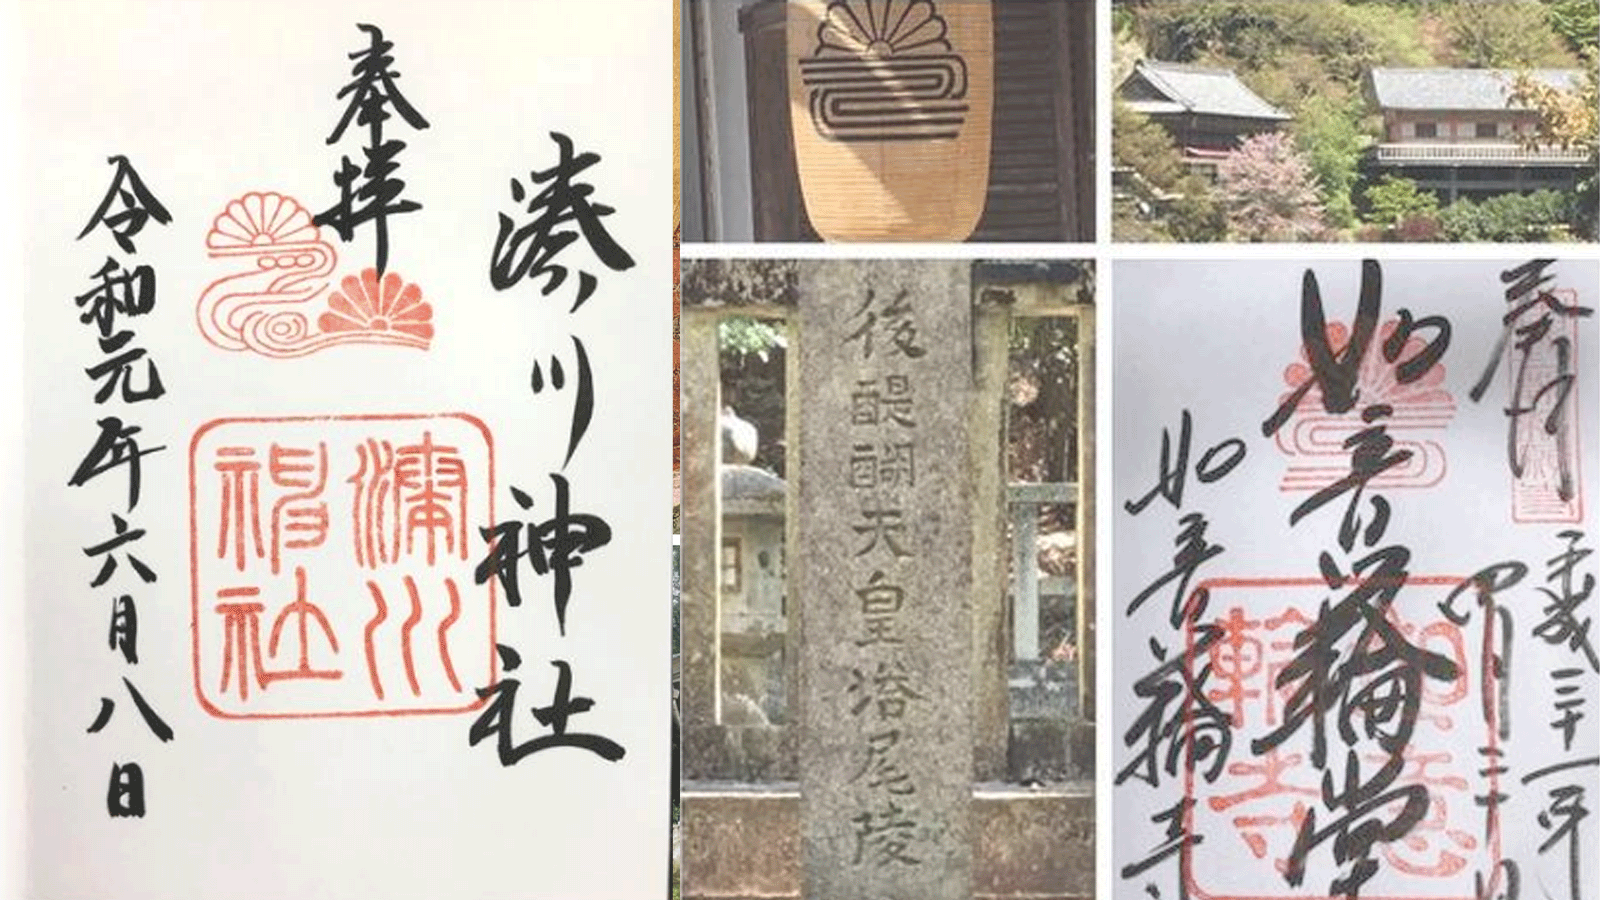 湊川神社
奉拝
令和元年六月八日
湊川
神社
後醍醐天皇塔尾陵
奉拝
平成三十一年
四月二十日
如意輪堂
如意輪寺
如意
輪寺